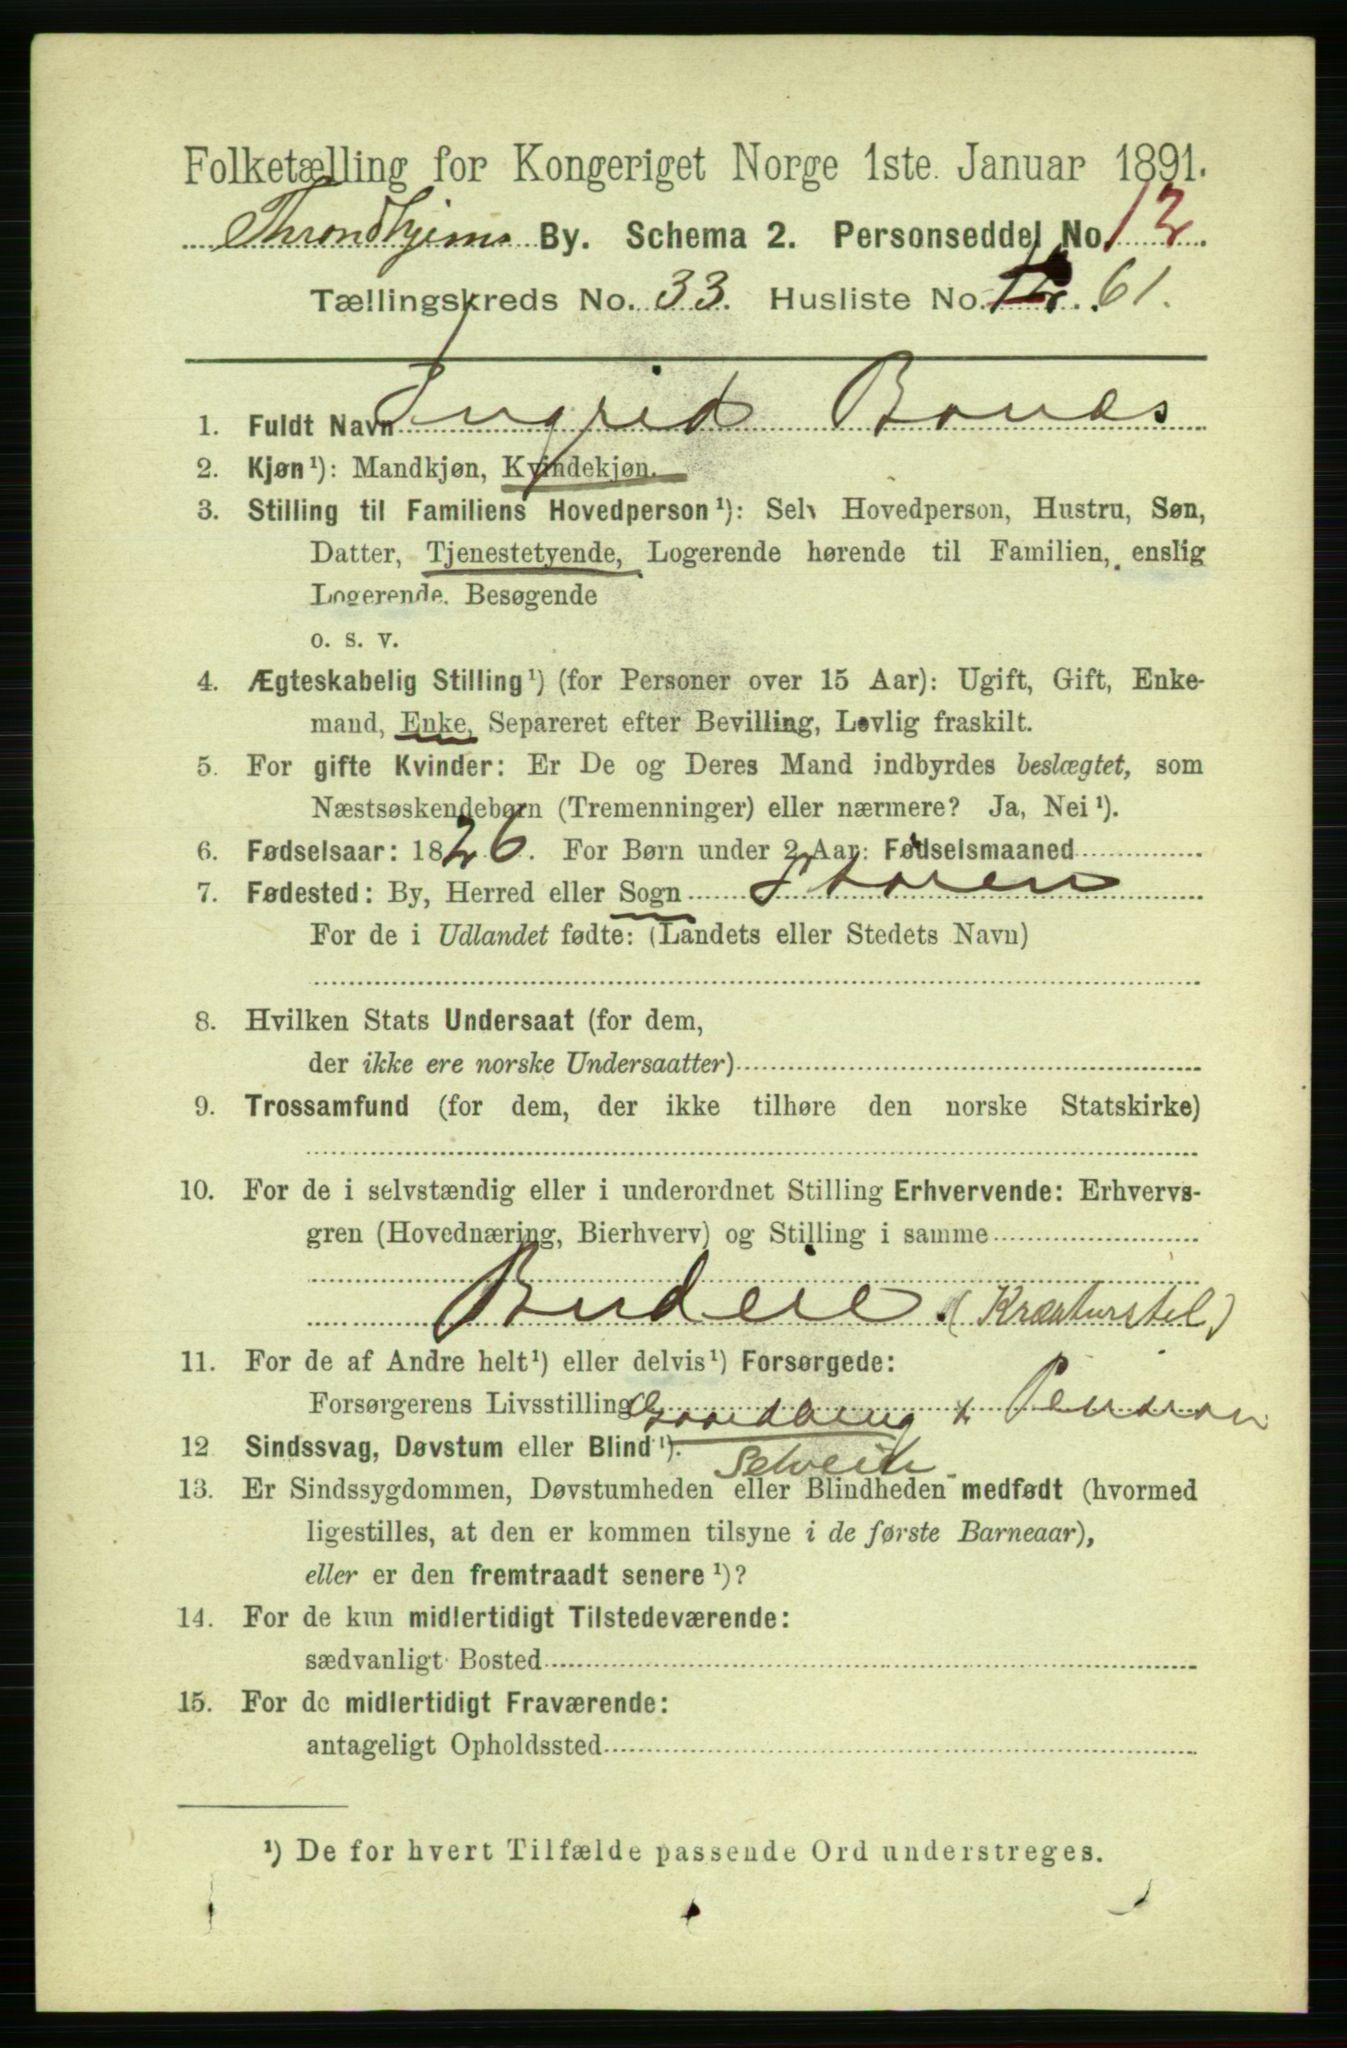 Folketælling for Kongeriget Norge 1ste. Januar 1891.
Throndhjems By. Schema 2. Personseddel No. 12.
Tællingskreds No. 33. Husliste No. 61.
1. Fuldt Navn Ingrid Bonæs
2. Kjøn¹): Mandkjøn, Kvindekjøn.
3. Stilling til Familiens Hovedperson¹): Selv Hovedperson, Hustru, Søn,
Datter, Tjenestetyende, Logerende hørende til Familien, enslig
Logerende, Besøgende
o. s. v.
4. Ægteskabelig Stilling¹) (for Personer over 15 Aar): Ugift, Gift, Enke-
mand, Enke, Separeret efter Bevilling, Lovlig fraskilt.
5. For gifte Kvinder: Er De og Deres Mand indbyrdes beslægtet, som
Næstsøskendebørn (Tremenninger) eller nærmere? Ja, Nei¹).
6. Fødselsaar: 1826. For Børn under 2 Aar: Fødselsmaaned
7. Fødested: By, Herred eller Sogn Støren
For de i Udlandet fødte: (Landets eller Stedets Navn)
8. Hvilken Stats Undersaat (for dem,
der ikke ere norske Undersaatter)
9. Trossamfund (for dem, der ikke tilhøre den norske Statskirke)
10. For de i selvstændig eller i underordnet Stilling Erhvervende: Erhvervs-
gren (Hovednæring, Bierhverv) og Stilling i samme
Budeie. (Kræaturstel)
11. For de af Andre helt¹) eller delvis¹) Forsørgede:
Forsørgerens Livsstilling Gaardbrug & Pension
12 Sindssvag, Døvstum eller Blind¹).
13. Er Sindssygdommen, Døvstumheden eller Blindheden medfødt (hvormed
ligestilles, at den er kommen tilsyne i de første Barneaar),
eller er den fremtraadt senere¹)?
14. For de kun midlertidigt Tilstedeværende:
sædvanligt Bosted
15. For de midlertidigt Fraværende:
antageligt Opholdssted
¹) De for hvert Tilfælde passende Ord understreges.